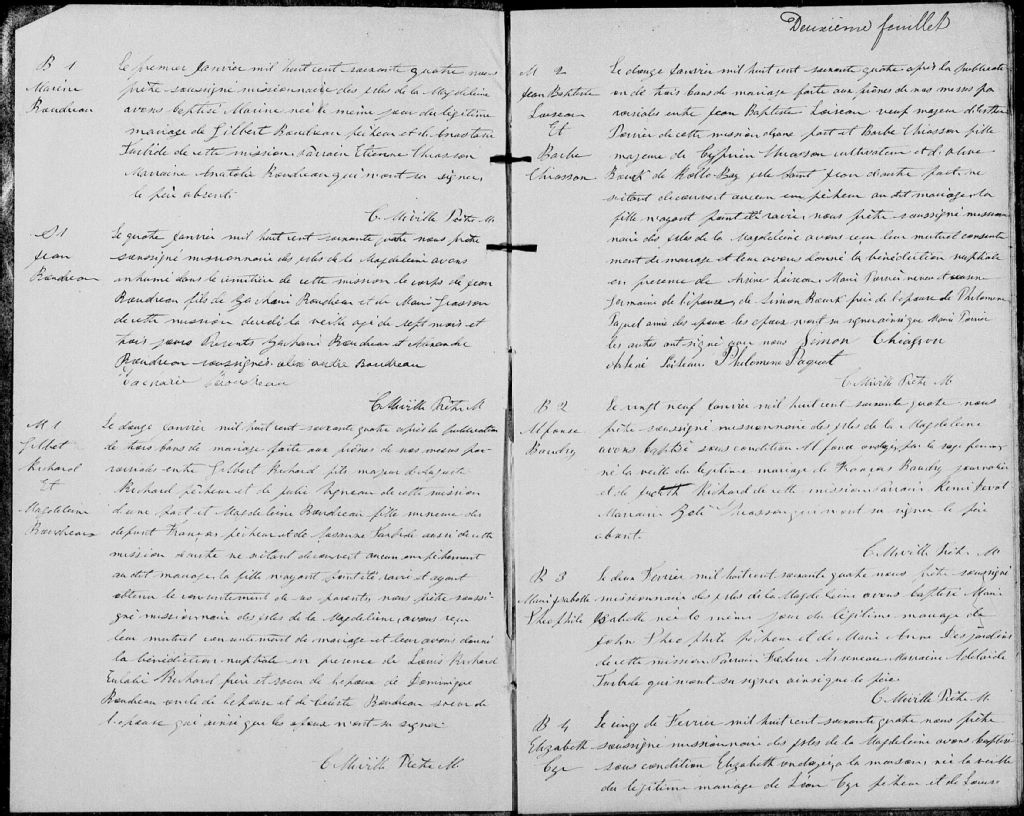 B 1
Marine
Boudreau
Le premier Janvier mil huit cent soixante quatre nous
prêtre soussigné missionnaire des Isles de la Magdeleine
avons baptisé Marine née le même jour du légitime
mariage de Gilbert Boudreau pêcheur et de Anastasie
Turbide de cette mission Parrain Etienne Chiasson
Marraine Anatolie Boudreau qui n'ont su signer,
le père absent.
C. Miville Prêtre M.
S 1
Jean
Boudreau
Le quatre Janvier mil huit cent soixante quatre nous prêtre
soussigné missionnaire des Isles de la Magdeleine avons
inhumé dans le cimitière de cette mission le corps de Jean
Boudreau fils de Zachari Boudreau et de Marie
de cette mission décédé la veille agé de sept mois et
trois jours Présents Zachari Boudreau et Alexandre
Boudreau soussignés alex andre Boudreau
C. Miville Prêtre M
M 1
Gilbert
Richard
Et
Magdeleine
Boudreau
Le douze Janvier mil huit cent soixante quatre après la publication
de trois bans de mariage faite aux prônes de nos messes par-
roissiales entre Gilbert Richard fils majeur de
Richard pêcheur et de Julie Vigneau de cette mission
d'une part et Magdeleine Boudreau fille mineure des
defunt François pêcheur et de Turbide aussi de cette
mission d'autre ne s'étant découvert aucun empêchement
au dit mariage, la fille n'ayant point été ravie et ayant
obtenu le consentement de ses parents, nous prêtre soussi-
gné missionnaire des Isles de la Magdeleine, avons reçu
leur mutuel consentement de mariage et leur avons donné
la bénédiction nuptiale en presence de Louis Richard
Eulalie Richard frère et soeur de l'époux de Dominique
Boudreau oncle de l'épouse et de Boudreau soeur de
l'épouse qui ainsi que les époux n'ont su signer
C. Miville Prêtre M.
Deuxième feuillet
M 2
Jean Baptiste
Loiseau
Et
Barbe
Chiasson
Le douze Janvier mil huit cent soixante quatre après la publicati-
on de trois bans de mariage faite aux prônes de nos messes pa-
roissiales entre Jean Baptiste Loiseau veuf majeur d'Esther
Poirier de cette mission d'une part et Barbe Chiasson fille
majeure de Cyprien Chiasson cultivateur et d'Olive
de Rollo Bay Isle Saint Jean d'autre part, ne
s'étant découvert aucun empêchement au dit mariage, la
fille n'ayant point été ravie, nous prêtre soussigné mission-
naire des Isles de la Magdeleine avons reçu leur mutuel consente-
ment de mariage et leur avons donné la bénédiction nuptiale
en presence de Loiseau, Marie Poirier neveu et cousine
germaine de l'épouse, de Simon frère de l'épouse de Philomene
Paquet amie des epoux les epoux n'ont su signer ainsi que Marie Poirier
les autres ont signé avec nous Simon Chiasson
Philomene Paquet
C. Miville Prêtre M.
B 2
Alfonse
Boudry
Le vingt neuf Janvier mil huit cent soixante quatre nous
prêtre soussigné missionnaire des Isles de la Magdeleine
avons baptisé sous condition Alfonse ondoyé par la sage femme,
né la veille du légitime mariage de François Boudry journalier
et de Judith Richard de cette mission Parrain Rémi
Marraine Chiasson qui n'ont su signer le père
absent.
C. Miville Prêtre M.
B 3
Marie Isabelle
Théophile
Le deux Fevrier mil huit cent soixante quatre nous prêtre soussigné
missionnaire des Isles de la Magdeleine avons baptisé Marie
Isabelle née le même jour du légitime mariage de
John Théophile pêcheur et de Marie Anne Desjardins
de cette mission Parrain Arseneau Marraine Adelaide
Turbide qui n'ont su signer ainsi que le père.
C. Miville Prêtre M.
B 4
Elizabeth
Cyr
Le cinq de Fevrier mil huit cent soixante quatre nous prêtre
soussigné missionnaire des Isles de la Magdeleine avons baptisé
sous condition Elizabeth ondoyée à la maison, née la veille
du légitime mariage de Léon Cyr pêcheur et de Louise